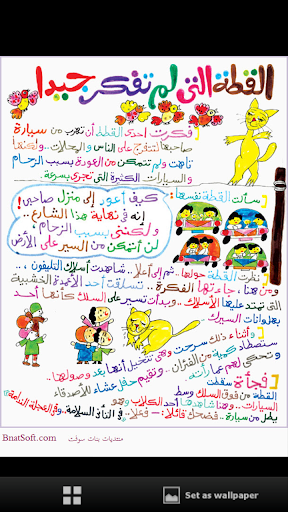 القطة التى لم تفكر جيدا
فكرت احدى القطط أن تهرب من سيارة
صاحبها لتتفرج على الناس والمحلات.. ولكنها
تاهت ولم تتمكن من العودة بسبب الزحام
والسيارات الكثيرة التى تجرى بسرعة
سألت القطة نفسها:
كيف أعود إلى منزل صاحبى؟
إنه فى نهاية هذا الشارع..
ولكننى بسبب الزحام
لن أتمكن من السير على الأرض
نظرت القطة حولها.. ثم إلى أعلا.. شاهدت أسلاك التليفون..
ومن هنا، جاءتها الفكرة.. تسلقت أحد الأعمدة الخشبية
التى تمتد عليها الأسلاك.. وبدأت تسير على السلك كأنها أحد
بهلوانات السيرك
وأثناء ذلك سرحت وهى تتخيل أنها بعد وصولها..
ستصطاد كمية من الفئران.. وتقيم حفل عشاء للأصدقاء
وتحكى لهم مغامراتها..
فجأة سقطت
القطة من فوق السلك وسط
السيارات.. وهنا شاهدها أحد الكلاب وهو
يطل من سيارة.. فضحك قائلا:- فعلا.. فى التأنى السلامة.. وفى العجلة الندامة
منتديات بنات سوفت BnatSoft.com
Set as wallpaper